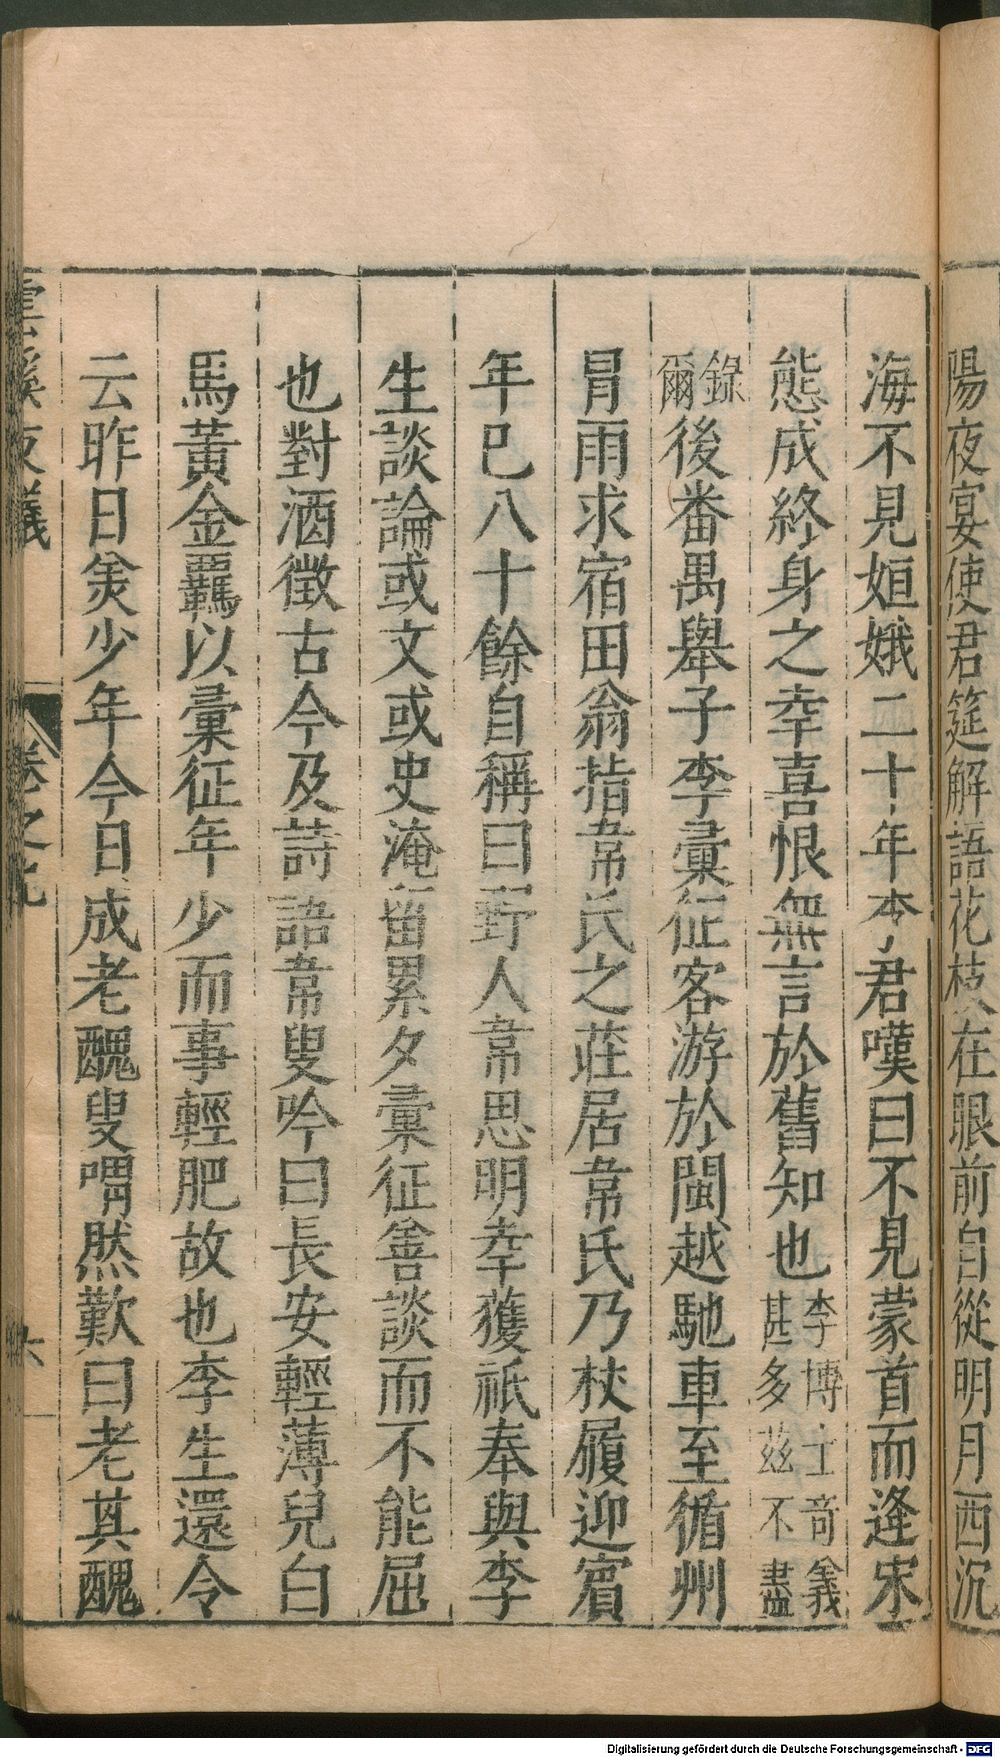 陽夜宴使君筵解語花枝在眼前自從明月西沉
海不見姮娥二十年李君嘆曰不見蒙首而逢宋
態成終身之幸喜恨無言於舊知也李博士奇義甚多茲不盡
錄爾後番禺舉子李彙征客游於閩越馳車至循州
冐雨求宿田翁指韋氏之莊居韋氏乃杖履迎賓
年已八十餘自稱曰野人韋思明幸獲祇奉與李
生談論或文或史淹留累夕彙征善談而不能屈
也對酒徵古今及詩語韋叟吟曰長安輕薄兒白
馬黃金羈以彙征年少而事輕肥故也李生還令
云昨日美少年今日成老醜叟喟然歎曰老其醜
雲溪友議
卷之
六
Digitalisierung gefördert durch die Deutsche Forschungsgemeinschaft - DFG